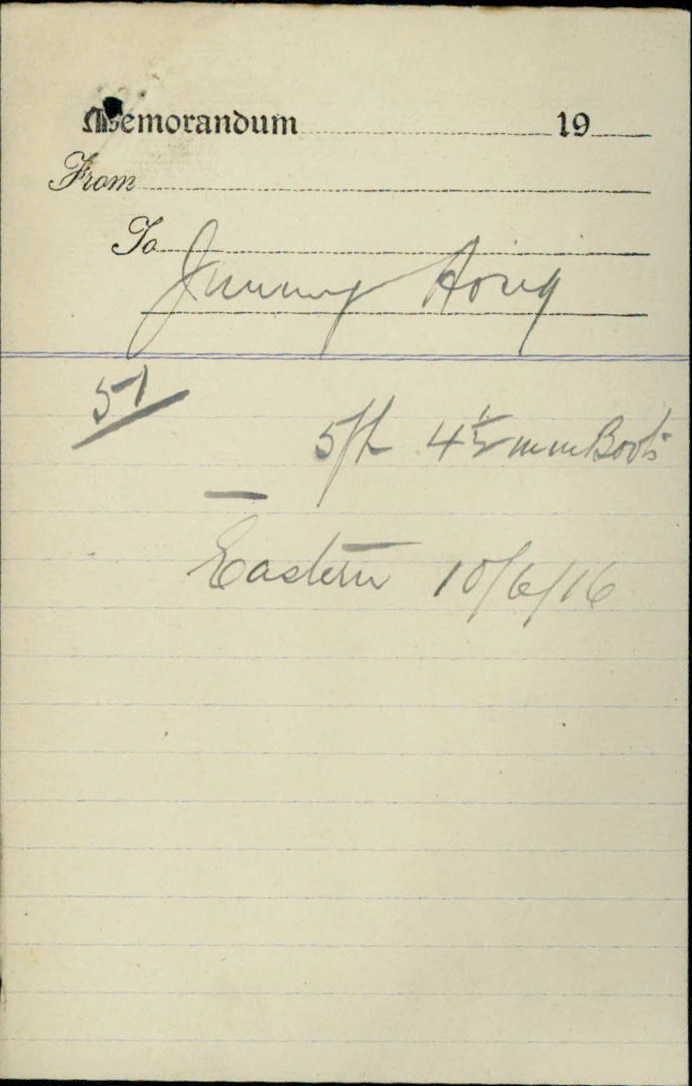 Memorandum 19
From
To
Jimmy Hong
51
5ft 4½ mm Boots
Eastern 10/6/16